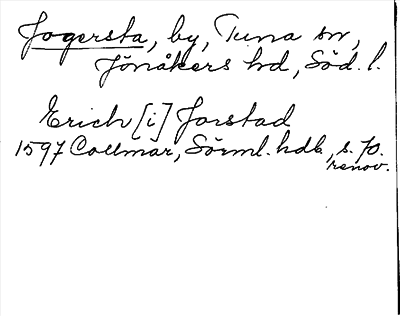 Jogersta, by, Tuna sn,
Jönåkers hd, Söd. l.
Erich [i] Jorstad
1597 Collmar, Sörml. hdl., s. 70.
renov.